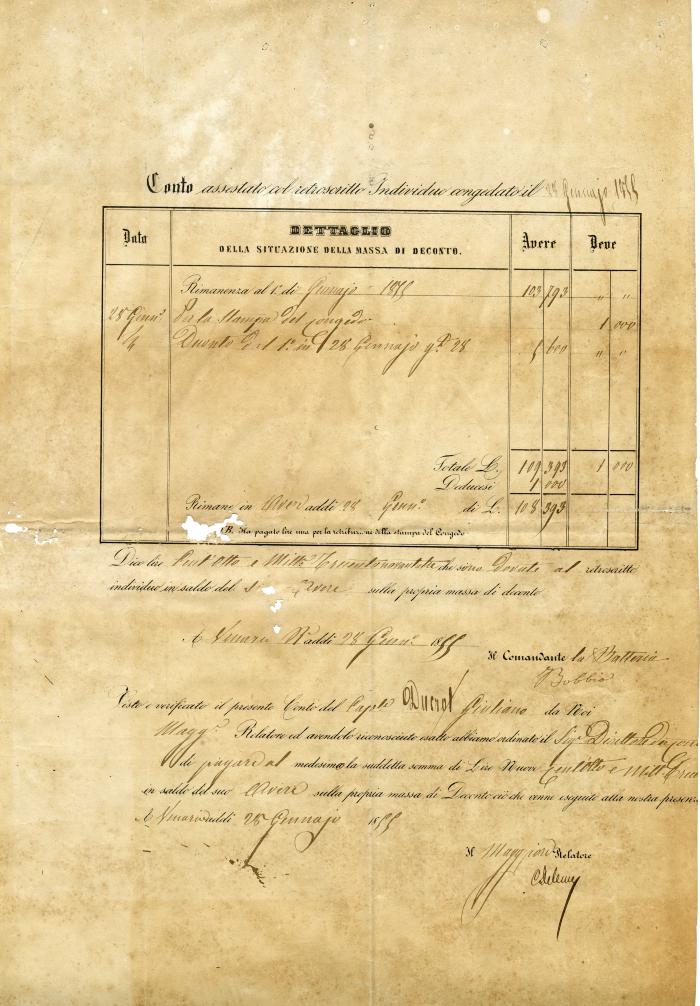 Conto assestato col retroscritto Individuo congedato il 28 Gennajo 1855
Data
DETTAGLIO
DELLA SITUAZIONE DELLA MASSA DI DECONTO.
Avere
Deve
Rimanenza al 1º di Gennajo 1855 103 793 " "
28 Genn.º Per la Stampa del congedo 1 000
Deconto dal 1º in 28 Gennajo gⁱ 28 5 600 " "
Totale L. 109 393 1 000
Deducesi 1 000
Rimane in Avere addì 28 Genn.º di L. 108 393
NB. Ha pagato lire una per la retribuzione della stampa del Congedo
Dico lire Cent'Otto e Mill.ⁱ Trecentonovantatre che sono dovute al retroscritto
individuo in saldo del Avere sulla propria massa di deconto
A Venaria Rª addì 28 Genn.º 1855
Il Comandante la Batteria
Bobbio
Visto e verificato il presente Conto del Ducrot Giuliano da Noi
Magg.ʳ Relatore ed avendolo riconosciuto esatto abbiamo ordinato il Sig.ʳ Direttore
di pagare al medesimo la suddetta somma di Lire Nuove Cent'Otto e Mill.ⁱ
in saldo del suo Avere sulla propria massa di Deconto ciò che venne eseguito alla nostra presenza
A Venaria addì 28 Gennajo 1855
Il Maggiore Relatore